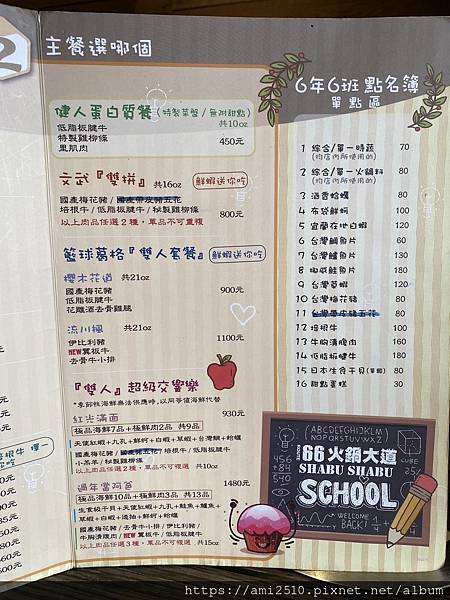 2 主餐選哪個
健人蛋白質餐 (特製菜盤 / 無附甜點)
共10oz
低脂板腱牛
特製雞柳條
里肌肉
450元
文武『雙拼』 共16oz 鮮蝦送你吃
國產梅花豬 / 國產帶皮豬五花
培根牛 / 低脂板腱牛 / 秘製雞柳條
以上肉品任選2種，單品不可重複
800元
籃球萬格『雙人套餐』 鮮蝦送你吃
櫻木花道 共21oz
國產梅花豬
低脂板腱牛
花雕酒去骨雞腿
900元
流川楓 共21oz
伊比利豬
NEW翼板牛
去骨牛小排
1100元
『雙人』超級交響樂
*季節性海鮮無法供應時，以同等值海鮮代替
紅光滿面 930元
極品海鮮7品+極鮮肉2品 共9品
天使紅蝦+九孔+鮮蚵+白蝦+草蝦+台灣鯛+蛤蠣
國產梅花豬 / 國產豬五花 / 培根牛 / 低脂板腱牛
小羔羊 / 秘製雞柳條
以上肉品任選2種，單品不可重複 共16oz
過年當阿爸 1480元
極品海鮮10品+極鮮肉3品 共13品
生食級干貝+天使紅蝦+九孔+鮭魚+鱸魚+
草蝦+白蝦+透抽+鮮蚵+蛤蠣
國產梅花豬 / 去骨牛小排 / 伊比利豬 /
牛胸溝腹肉 / NEW翼板牛 / 低脂板腱牛
以上肉品任選3種，單品不可重複 共15oz
6年6班點名簿
單點區
1 綜合/單一時蔬 70
(肉店內所使用的)
2 綜合/單一火鍋料 80
(肉店內所使用的)
3 酒香蛤蠣 80
4 布袋鮮蚵 100
5 宜蘭在地白蝦 120
6 台灣鯛魚片 60
7 台灣鱸魚片 130
8 挪威鮭魚片 180
9 台灣草蝦 120
10 台灣梅花豬 80
11 台灣帶皮豬五花 80
12 培根牛 100
13 牛胸溝腹肉 160
14 低脂板腱牛 100
15 日本生食干貝(單顆) 80
16 甜點蛋糕 30
ABCDEFGHIJKLM
NOPQRSTUVWXYZ
66火鍋大道
SHABU SHABU
SCHOOL
WELCOME
BACK!
https://ami2510.pixnet.net/album